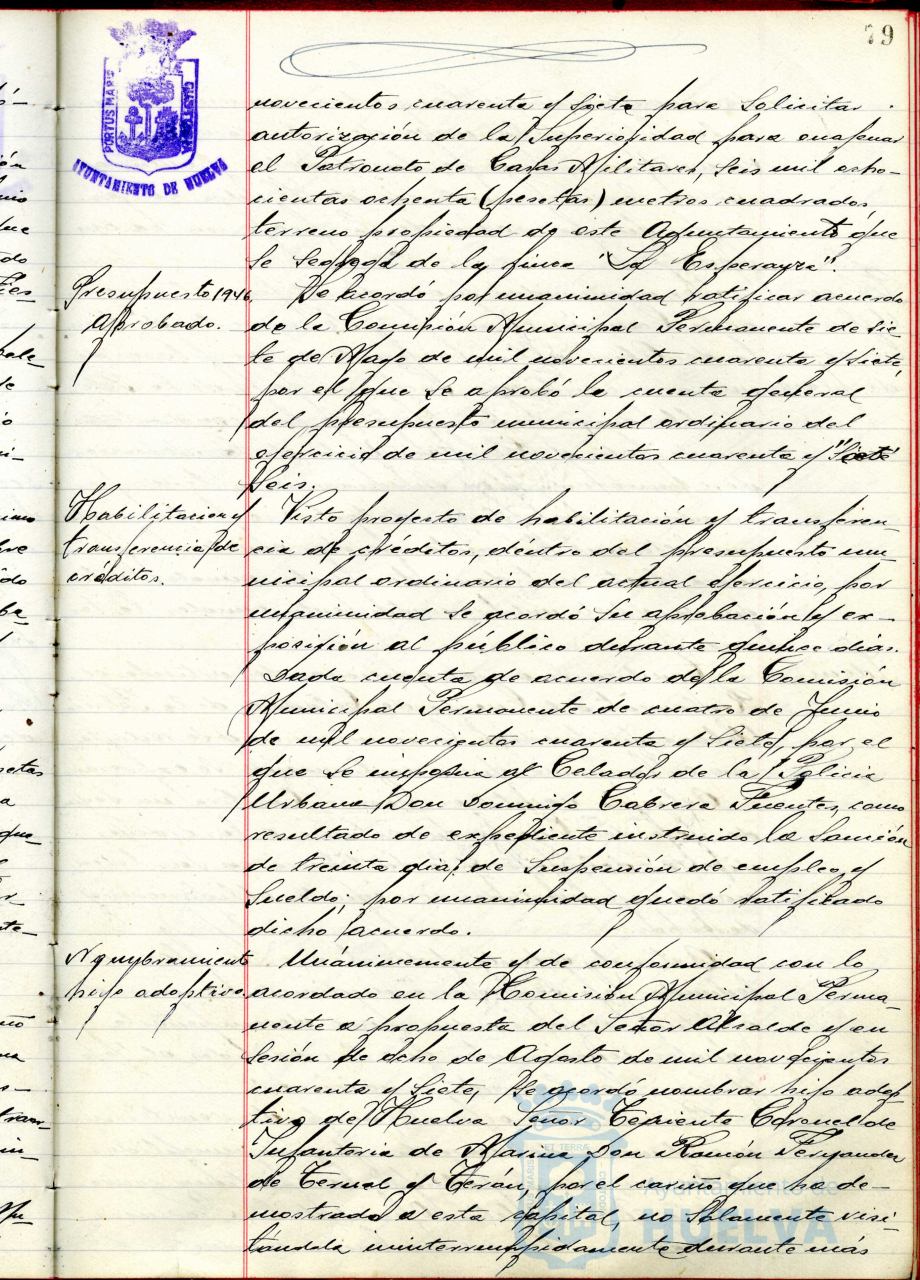 79
PORTUS MARIS
CUSTODIA
AYUNTAMIENTO DE HUELVA
novecientos cuarenta y siete para solicitar
autorización de la Superioridad para enajenar
el Patronato de Casas Militares, seis mil ocho-
cientas ochenta (pesetas) metros cuadrados
terreno propiedad de este Ayuntamiento que
se segrega de la finca "La Esperanza".
Presupuesto 1946.
Aprobado.
Se acordó por unanimidad ratificar acuerdo
de la Comisión Municipal Permanente de sie-
te de Mayo de mil novecientos cuarenta y siete
por el que se aprobó la cuenta general
del presupuesto municipal ordinario del
ejercicio de mil novecientos cuarenta y "siete
seis.
Habilitacion y
transferencia de
créditos.
Visto proyecto de habilitación y transferen-
cia de créditos, dentro del presupuesto mu
nicipal ordinario del actual ejercicio, por
unanimidad se acordó su aprobación y ex-
posición al público durante quince días.
Dada cuenta de acuerdo de la Comisión
Municipal Permanente de cuatro de Junio
de mil novecientos cuarenta y siete, por el
que se imponia al Celador de la Policia
Urbana Don Domingo Cabrera Fuentes, como
resultado de expediente instruido la sanción
de treinta dias de suspensión de empleo y
sueldo; por unanimidad quedó ratificado
dicho acuerdo.
Nombramiento
hijo adoptivo.
Unánimemente y de conformidad con lo
acordado en la Comisión Municipal Perma
nente a propuesta del Señor Alcalde y en
sesión de ocho de Agosto de mil novecientos
cuarenta y siete, se acordó nombrar hijo adop
tivo de Huelva Señor Teniente Coronel de
Infanteria de Marina Don Ramón Fernandez
de Teruel y Terán, por el cariño que ha de-
mostrado a esta capital, no solamente visi
tandola ininterrumpidamente durante más
Ayuntamiento de
HUELVA